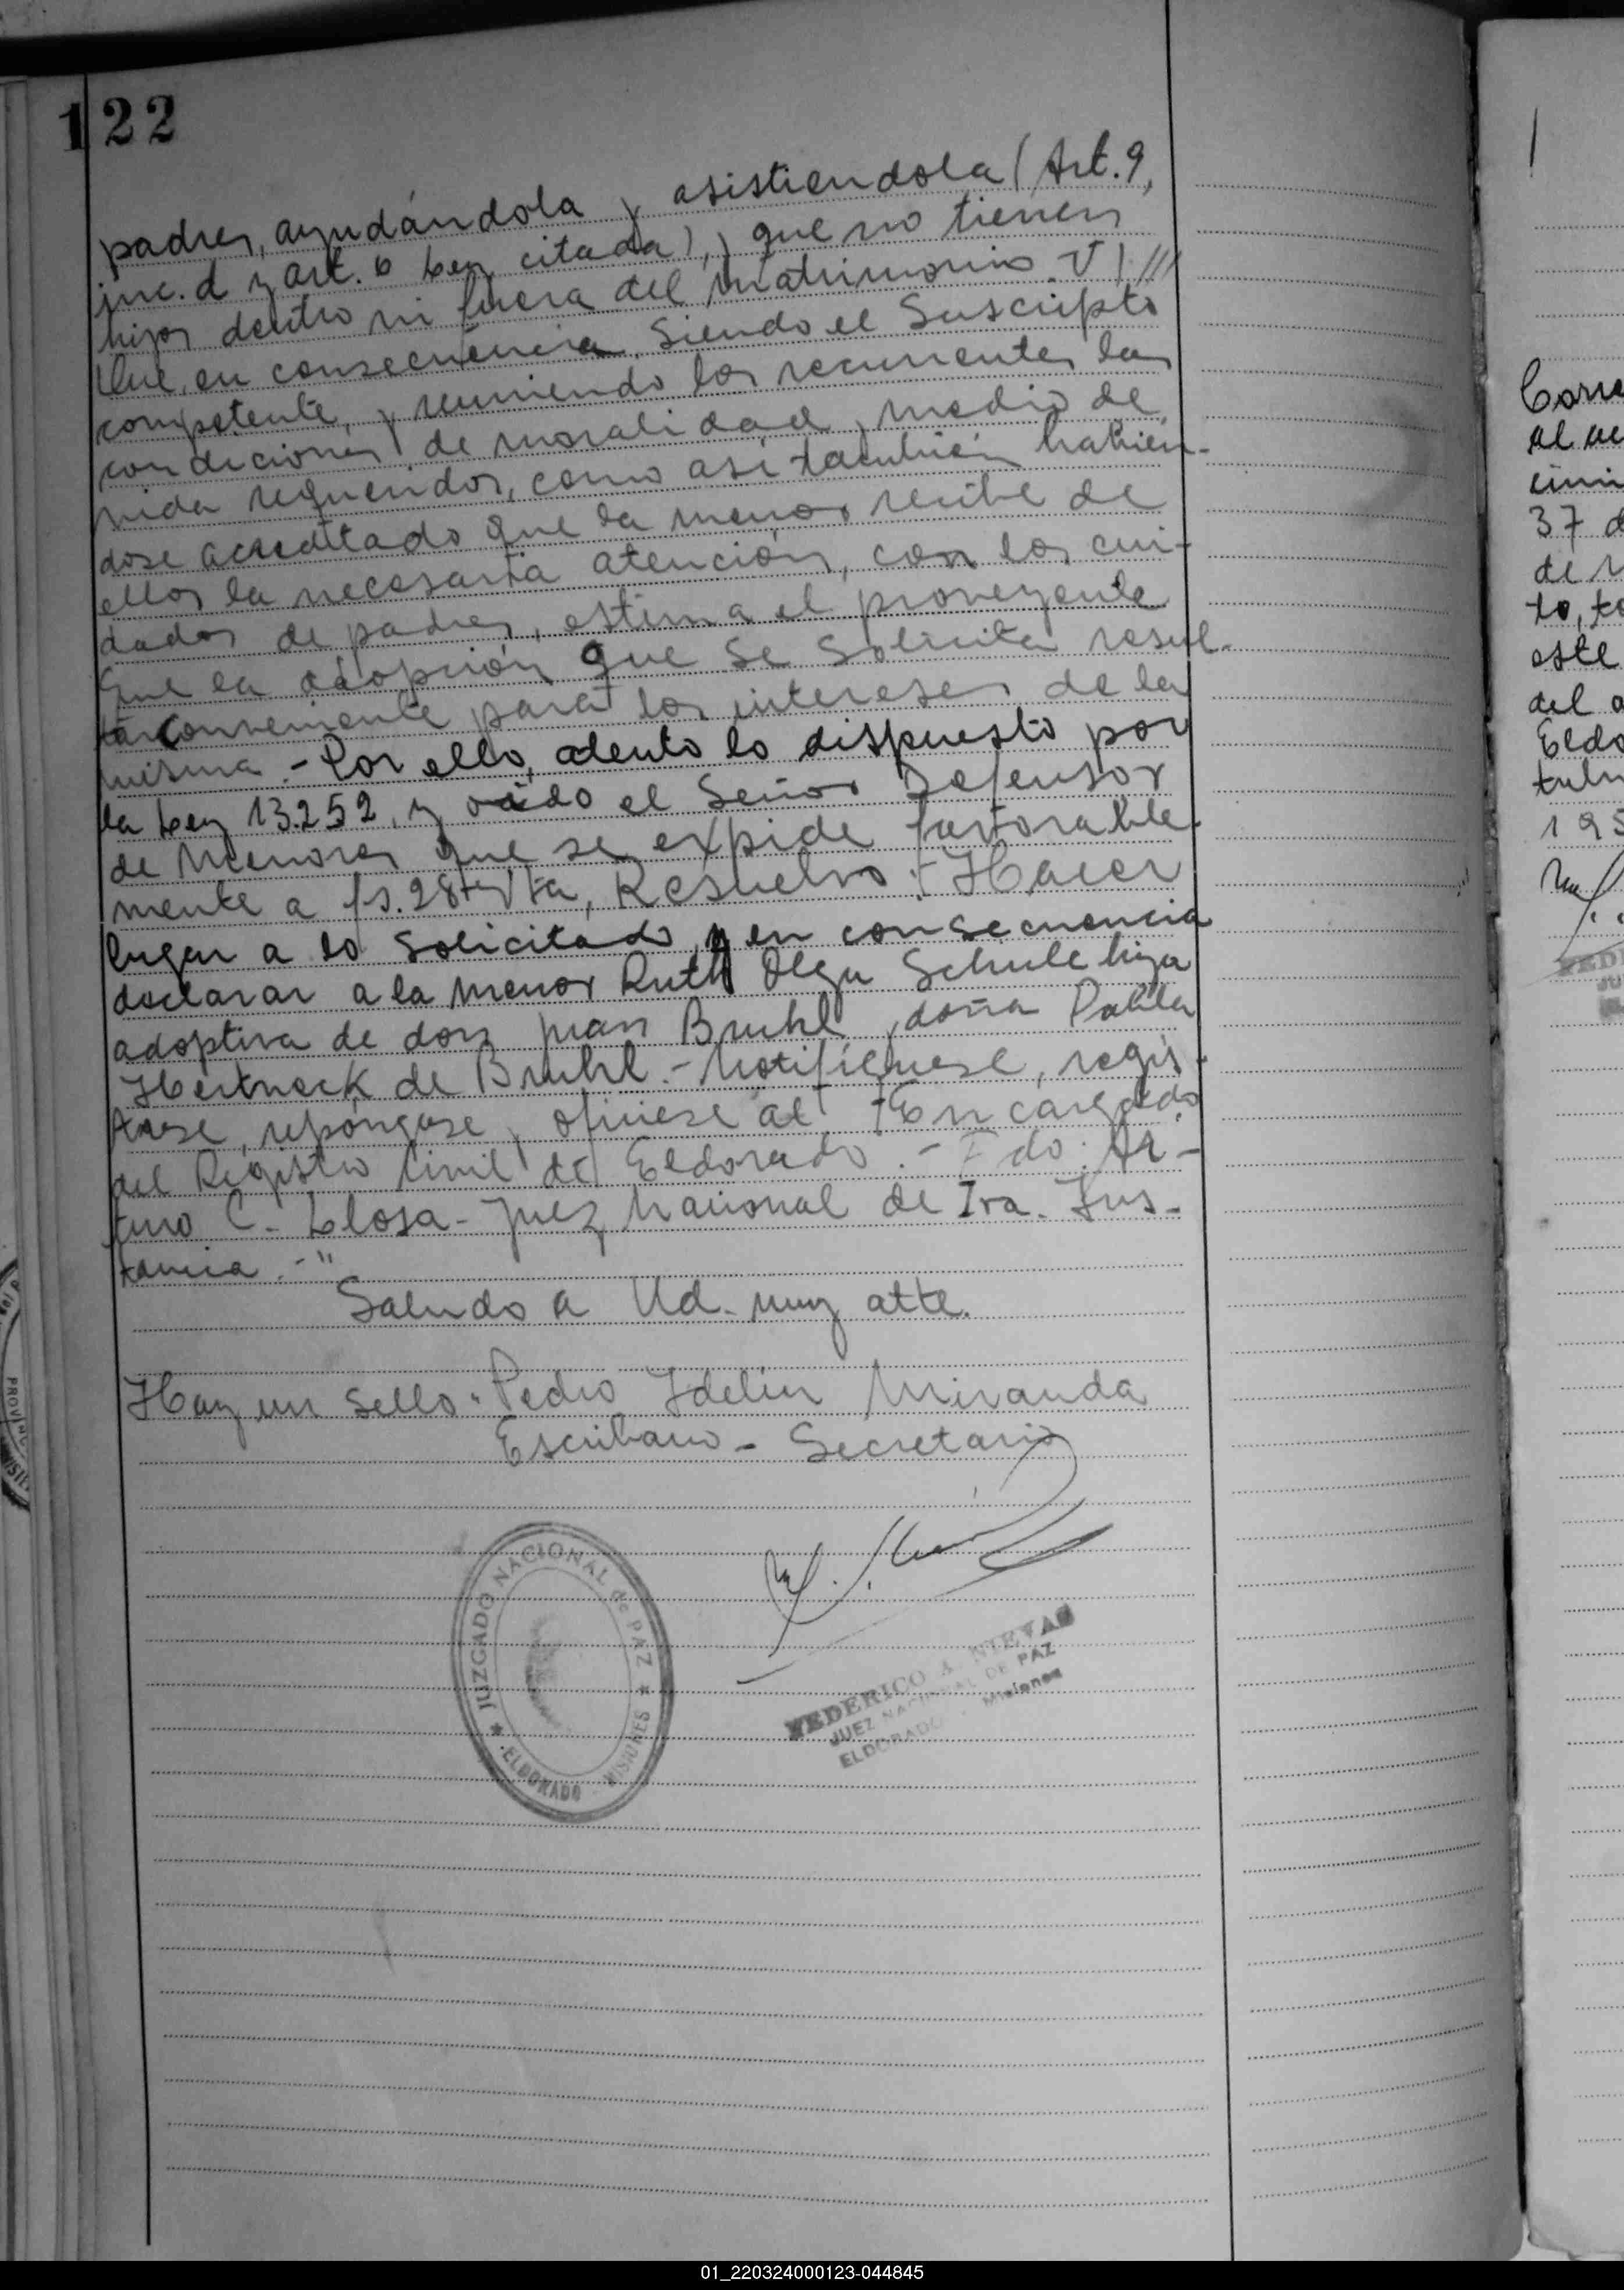 122
padres, ayudándola y asistiendola (Art. 9,
inc. d y art. 6 Ley citada), y que no tienen
hijos dentro ni fuera del matrimonio. V) ///
Que, en consecuencia, siendo el Suscripto
competente, y reuniendo los recurrentes las
condiciones de moralidad, medio de
vida requeridos, como así también habién-
dose acreditado que la menor recibe de
ellos la necesaria atención, con los cui-
dados de padres, estima el proveyente
que la adopción que se solicita resul-
ta conveniente para los intereses de la
misma.- Por ello, atento lo dispuesto por
la Ley 13.252, y oído el Señor Defensor
de Menores que se expide favorable-
mente a fs. 28 vta, Resuelvo: Hacer
lugar a lo solicitado y en consecuencia
declarar a la menor Ruth Olga Schule hija
adoptiva de don Juan Bruhl y doña Paula
Hertneck de Bruhl.- Notifíquese, regís-
trese, repóngase y ofíciese al Encargado
del Registro Civil de Eldorado.- Fdo: Ar-
turo C. Llosa- Juez Nacional de Ira. Ins-
tancia.-"
Saludo a Ud. muy atte.
Hay un sello: Pedro Idelin Miranda
Escribano - Secretario
JUZGADO NACIONAL de PAZ
ELDORADO MISIONES
FEDERICO A NIEVAS
JUEZ NACIONAL DE PAZ
ELDORADO - Misiones
al
37 d
de
to, to
este
del a
Eldo
195
01_220324000123-044845